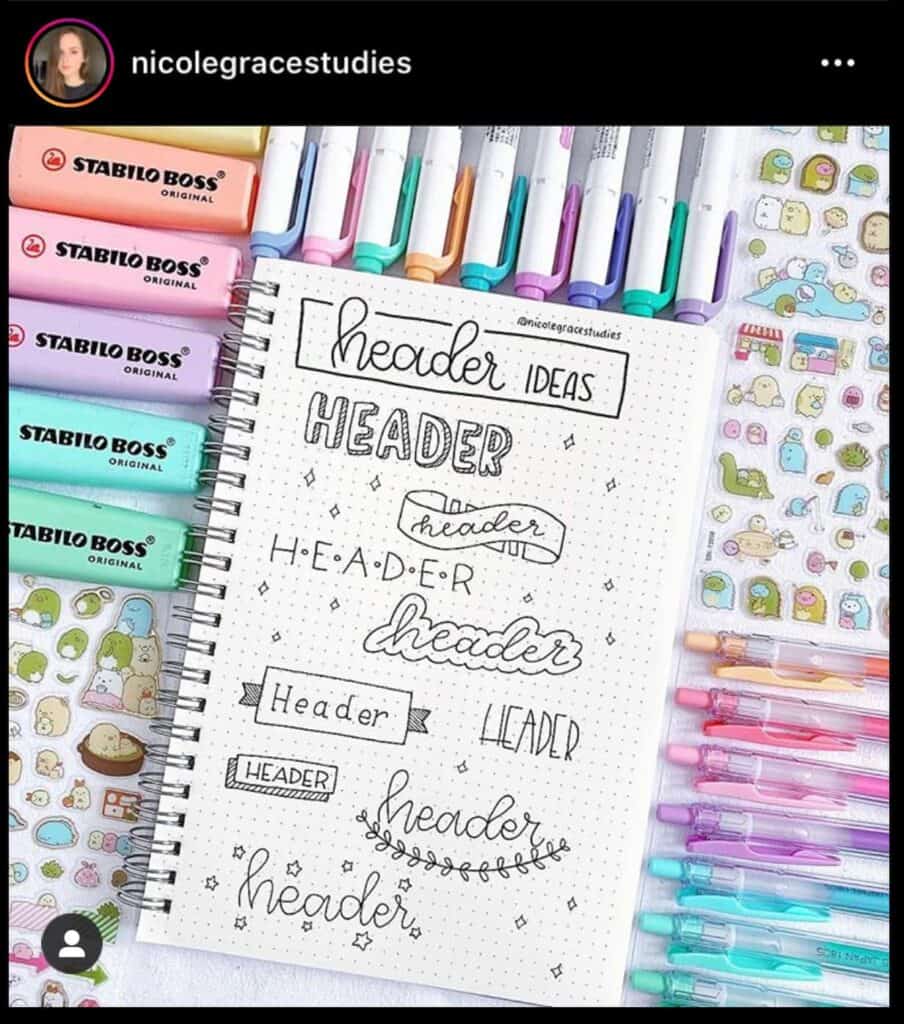 nicolegracestudies
STABILO BOSS®
ORIGINAL
STABILO BOSS®
ORIGINAL
STABILO BOSS®
ORIGINAL
STABILO BOSS®
ORIGINAL
STABILO BOSS®
ORIGINAL
@nicolegracestudies
header IDEAS
HEADER
header
H•E•A•D•E•R
header
Header
HEADER
HEADER
header
header